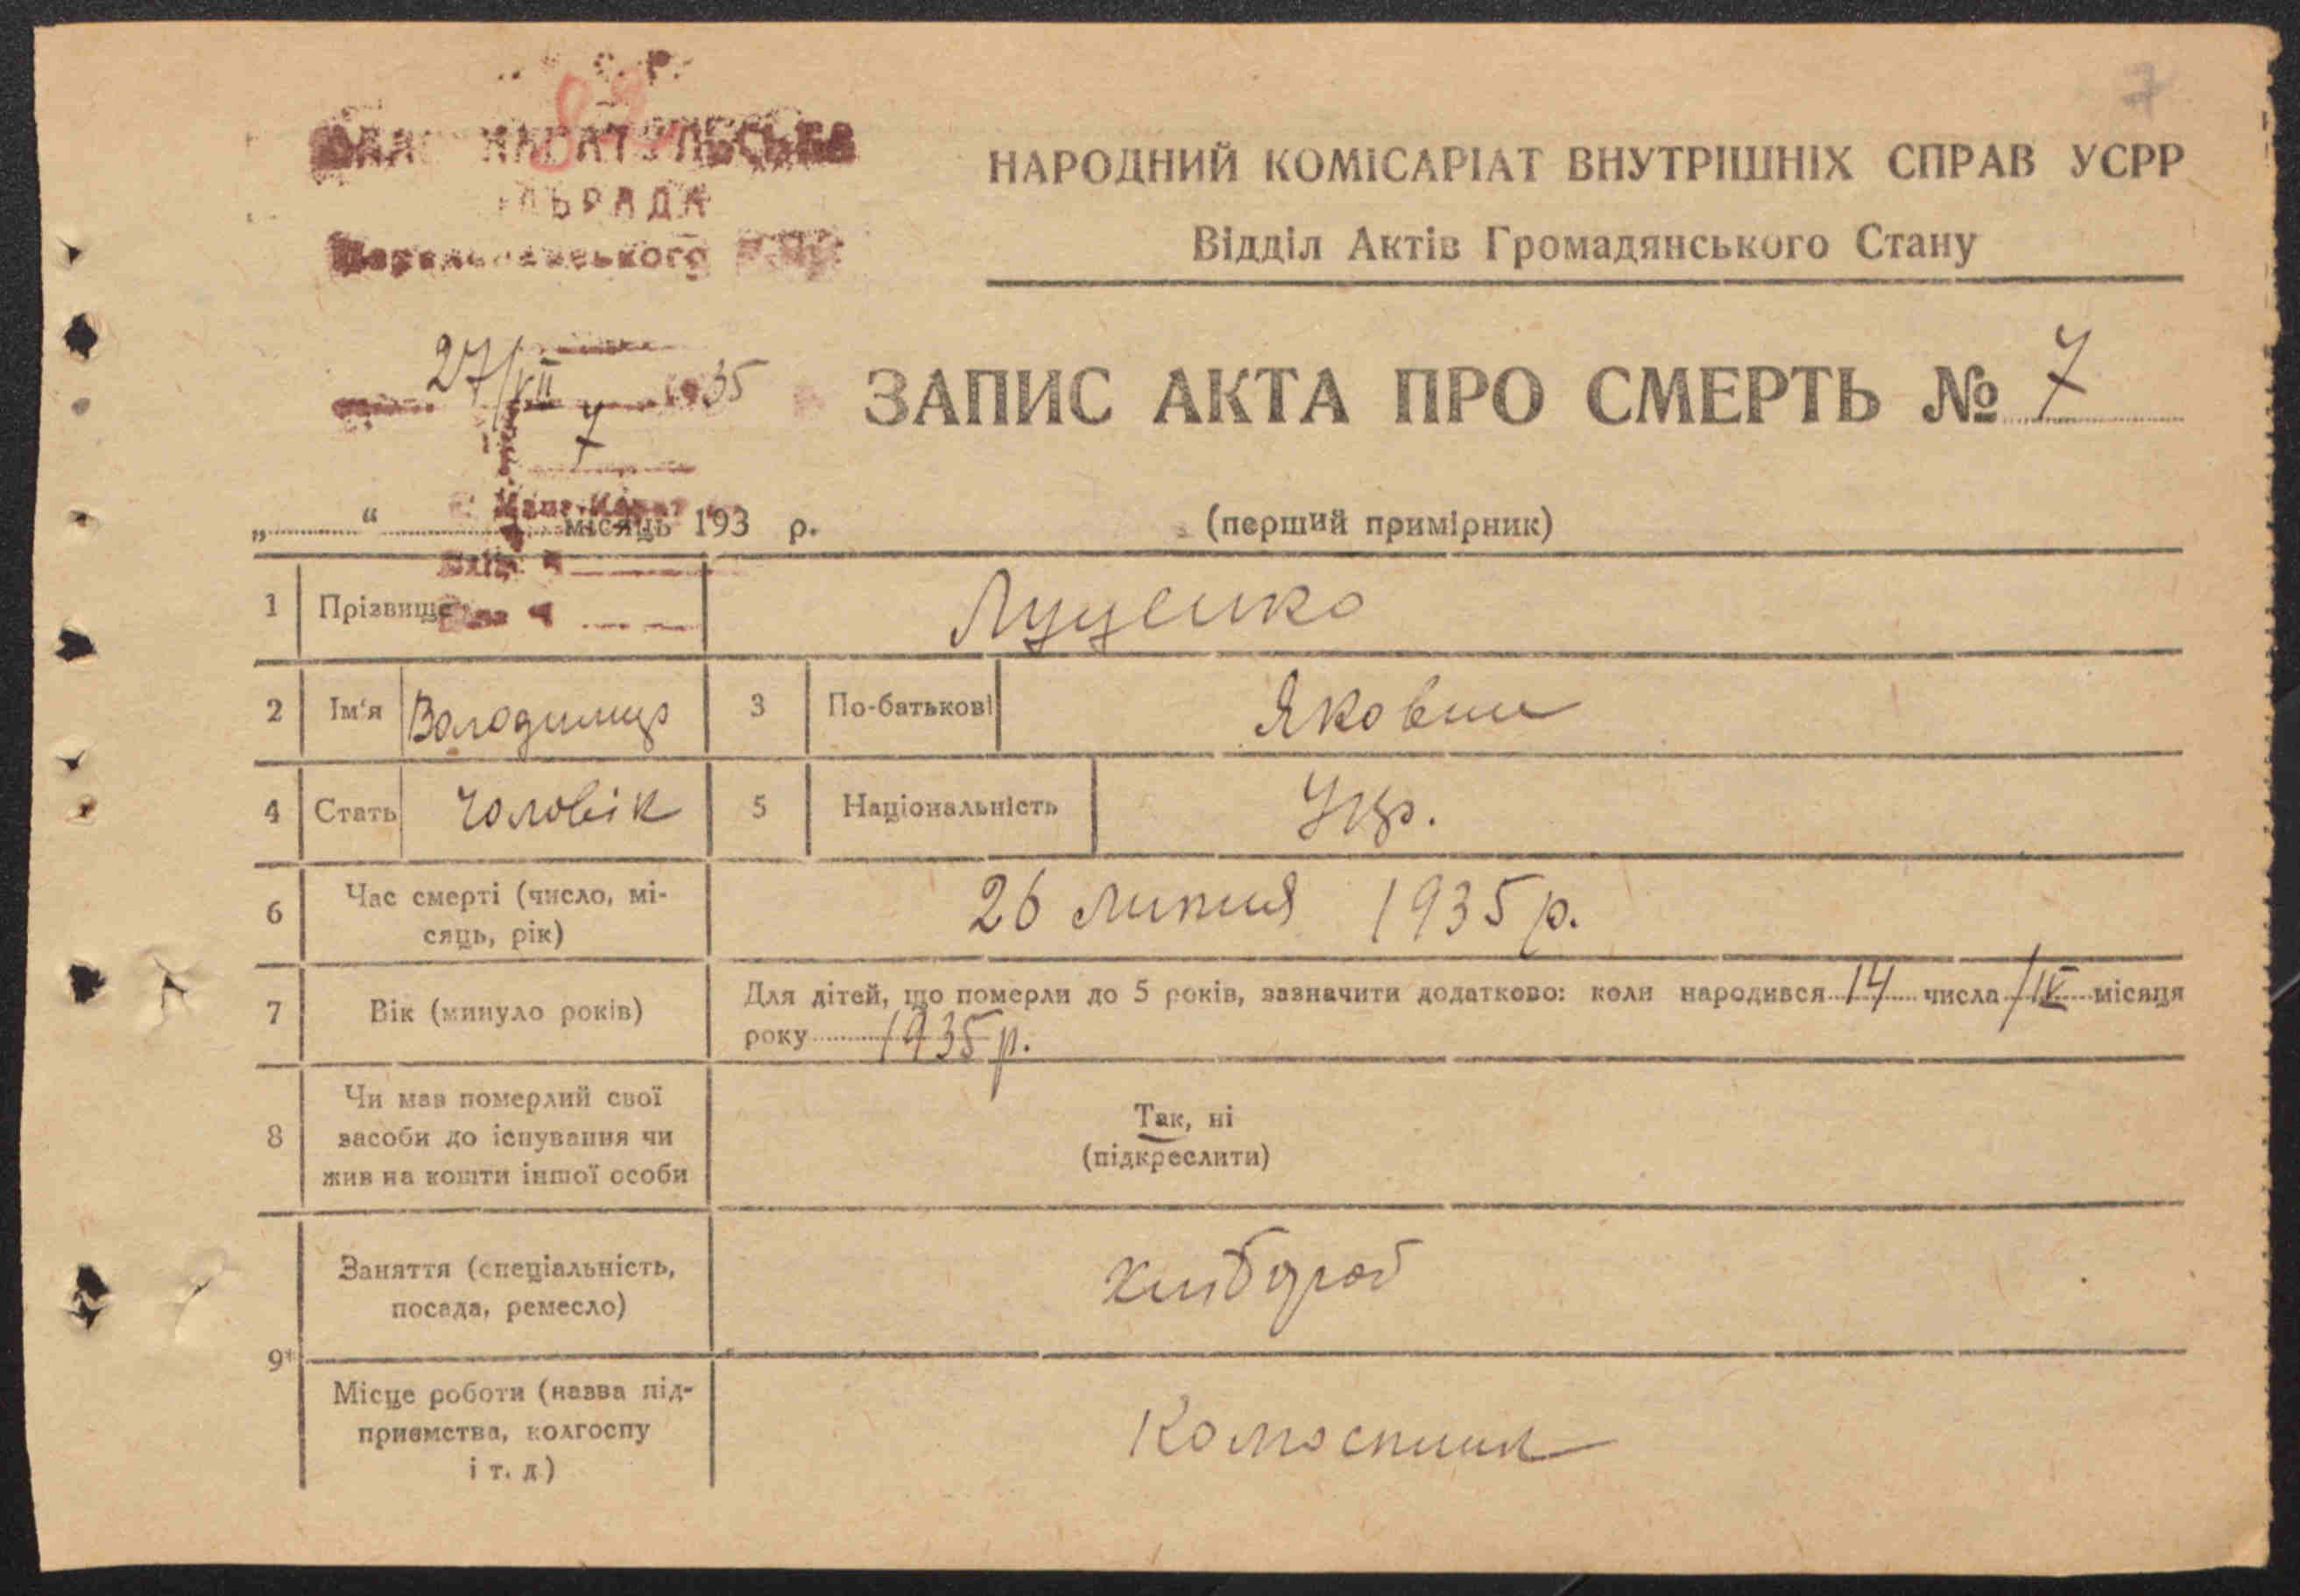 7
НАРОДНИЙ КОМІСАРІАТ ВНУТРІШНІХ СПРАВ УСРР
Відділ Актів Громадянського Стану
ЗАПИС АКТА ПРО СМЕРТЬ № 7
27/VII 1935
7
„ “ місяць 193 р.
(перший примірник)
1 Прізвище Луценко
2 Ім'я Володимир 3 По-батькові Якович
4 Стать Чоловік 5 Національність Укр.
6 Час смерті (число, мі-
сяць, рік) 26 липня 1935 р.
7 Вік (минуло років) Для дітей, що померли до 5 років, зазначити додатково: коли народився 14 числа /IV місяця
року 1935 р.
8 Чи мав померлий свої
засоби до існування чи
жив на кошти іншої особи
Так, ні
(підкреслити)
9*
Заняття (спеціальність,
посада, ремесло)
хлібороб
Місце роботи (назва під-
приємства, колгоспу
і т. д)
Колгоспник